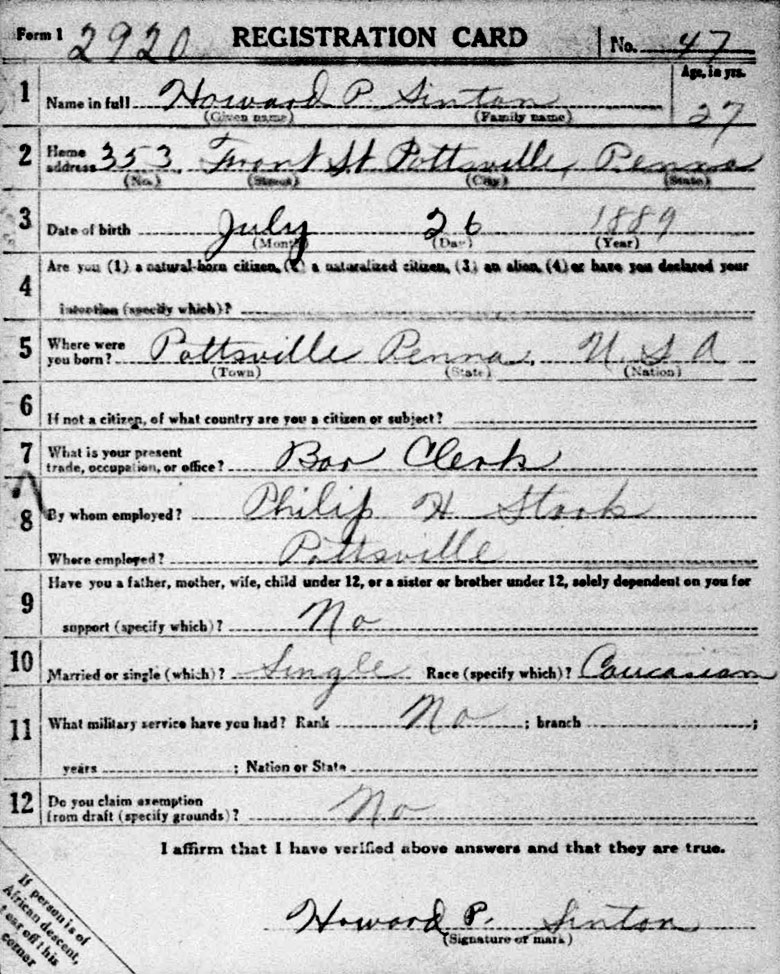 Form 1 2920 REGISTRATION CARD No. 47
1 Name in full Howard P. Sinton Age, in yrs. 27
(Given name) (Family name)
2 Home address 353 Front St Pottsville, Penna
(No.) (Street) (City) (State)
3 Date of birth July 26 1889
(Month) (Day) (Year)
4 Are you (1) a natural-born citizen, (2) a naturalized citizen, (3) an alien, (4) or have you declared your
intention (specify which)?
5 Where were you born? Pottsville Penna. U S A
(Town) (State) (Nation)
6 If not a citizen, of what country are you a citizen or subject?
7 What is your present trade, occupation, or office? Bar Clerk
8 By whom employed? Philip H
Where employed? Pottsville
9 Have you a father, mother, wife, child under 12, or a sister or brother under 12, solely dependent on you for
support (specify which)? No
10 Married or single (which)? Single Race (specify which)? Caucasian
11 What military service have you had? Rank No ; branch ;
years ; Nation or State
12 Do you claim exemption from draft (specify grounds)? No
I affirm that I have verified above answers and that they are true.
Howard P. Sinton
(Signature or mark)
If person is of
African descent,
tear off this
corner